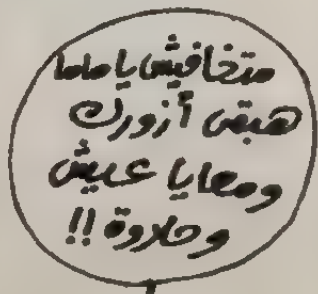 متخافيش يا ماما
هبقى أزورك
ومعايا عيش
وحلاوة !!